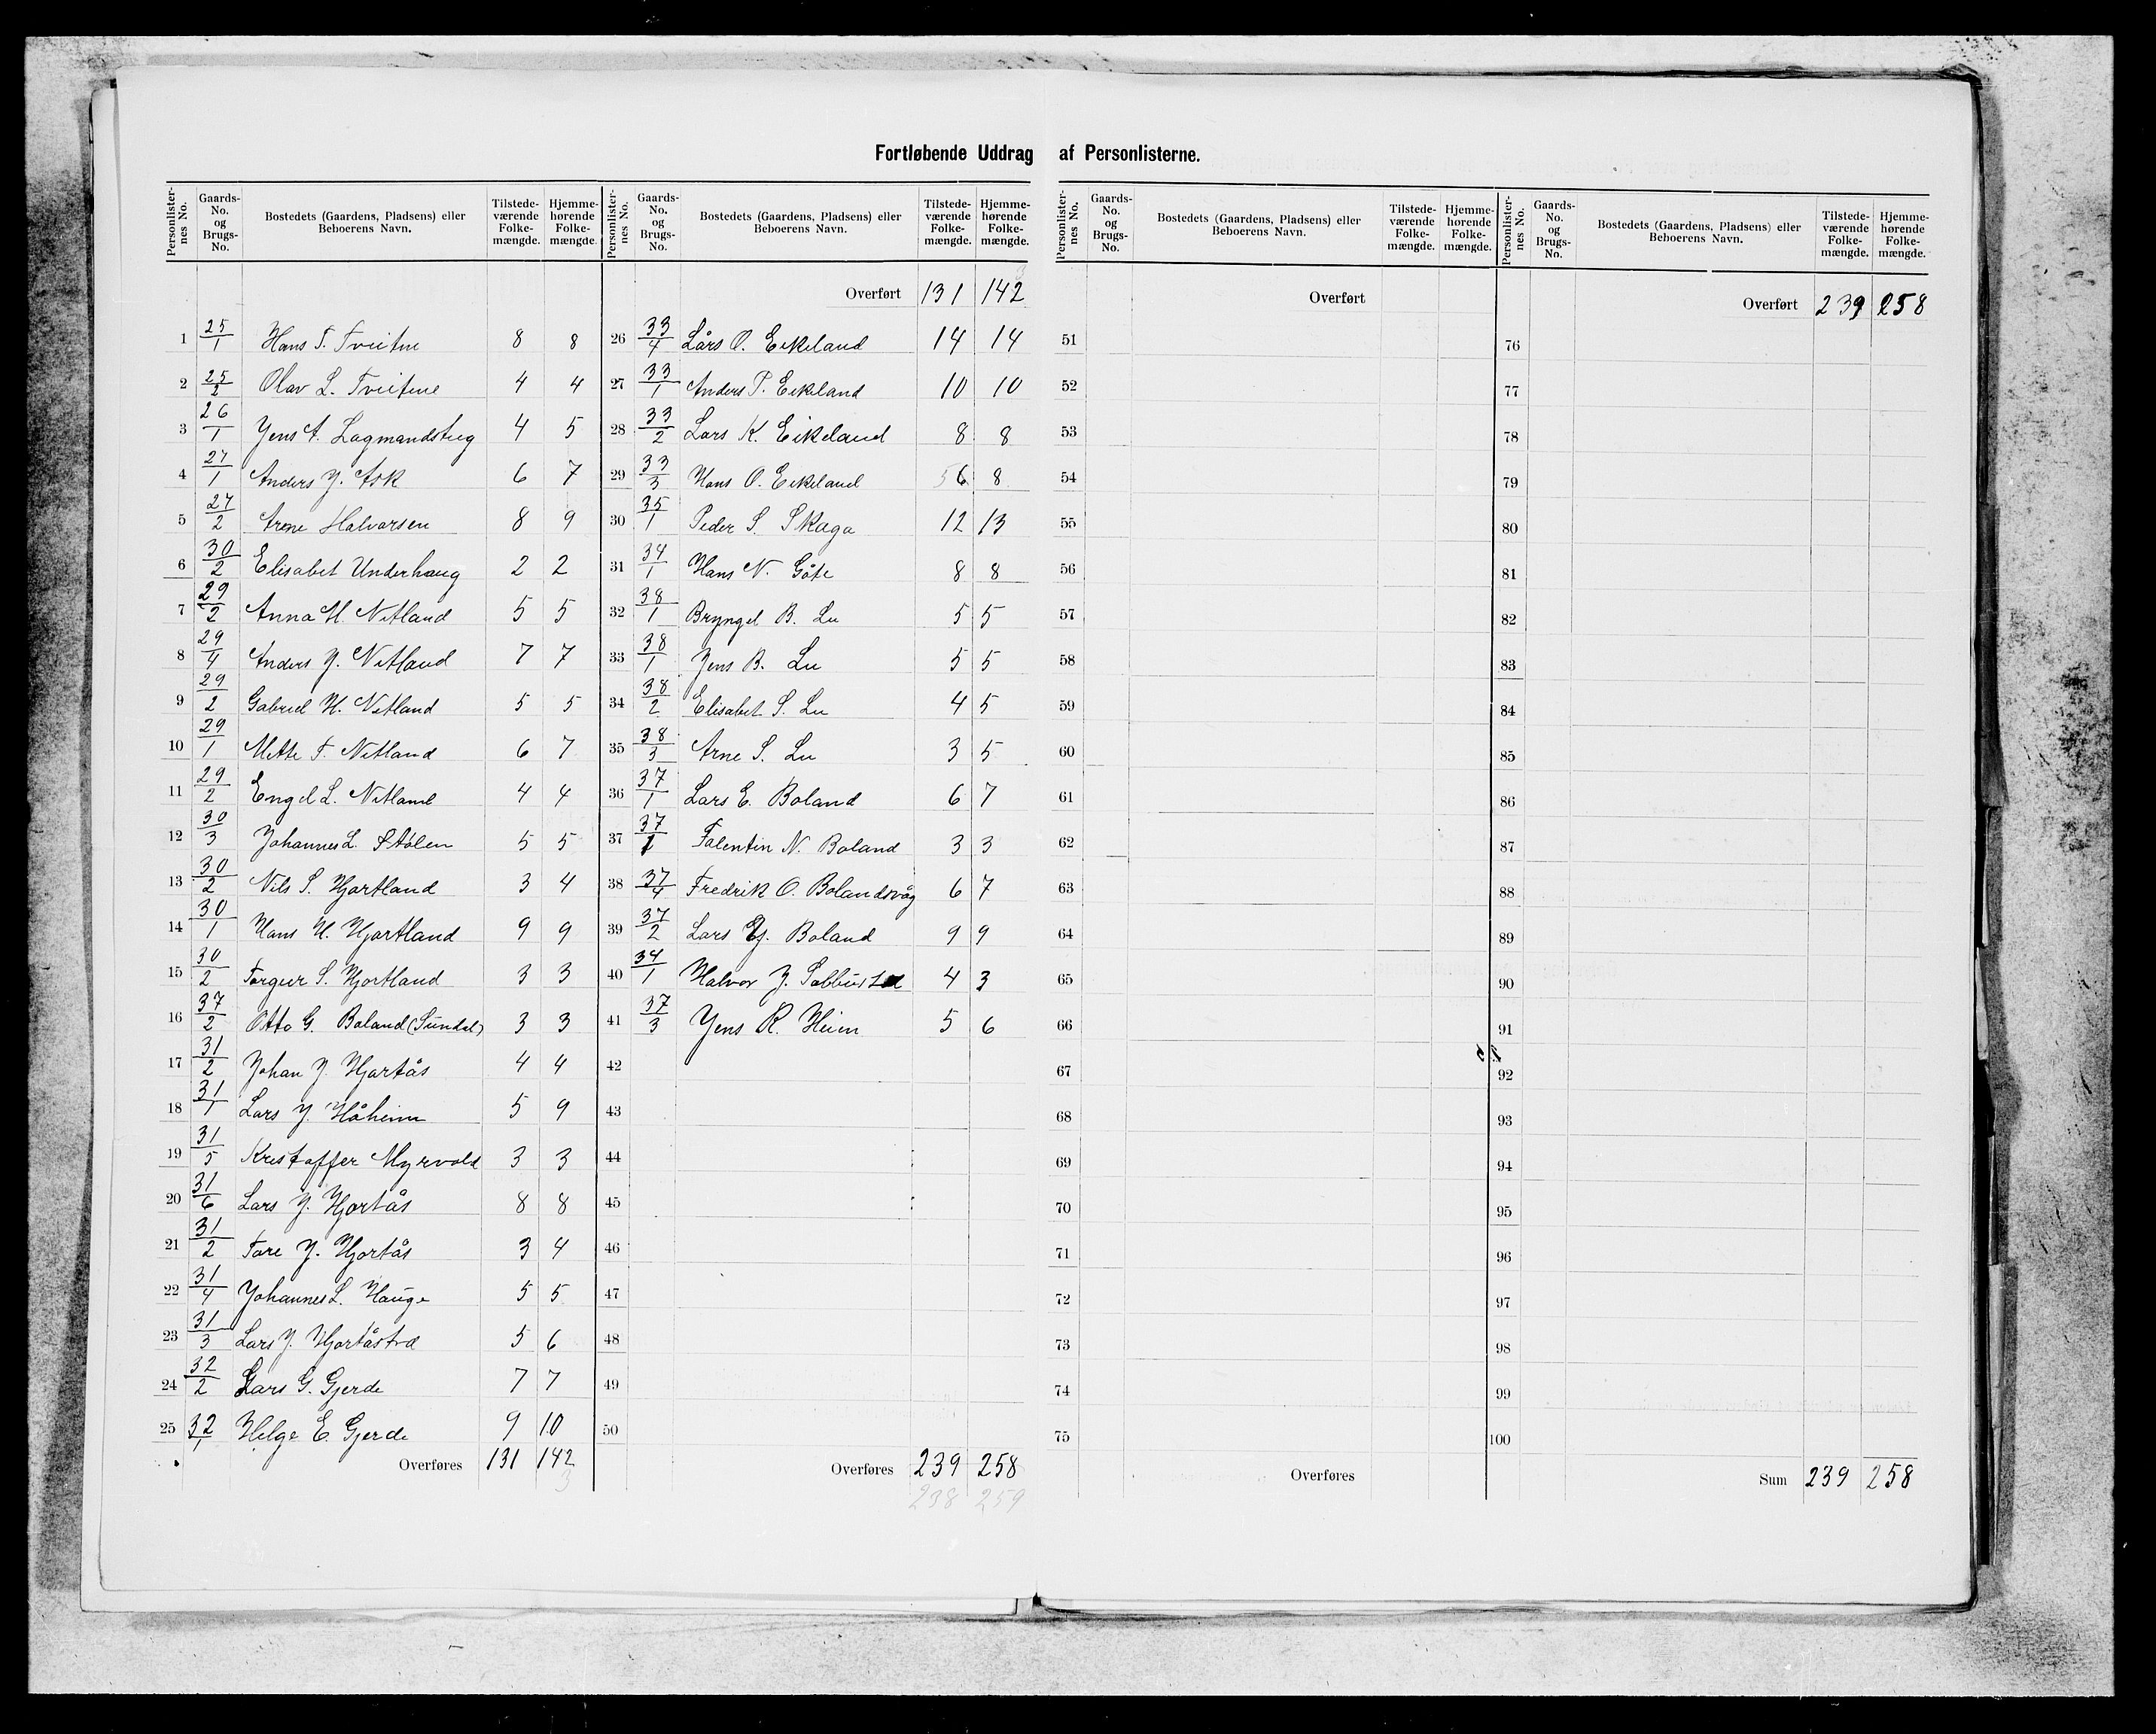 Fortløbende Uddrag af Personlisterne.
Personlister-nes No. Gaards-No. og Brugs-No. Bostedets (Gaardens, Pladsens) eller Beboerens Navn. Tilstede-værende Folke-mængde. Hjemme-hørende Folke-mængde.
1 25/1 Hans T. Tveitne 8 8
2 25/2 Olav L. Tveitne 4 4
3 26/1 Jens A. Lagmandstveg 4 5
4 27/1 Anders J. Ask 6 7
5 27/2 Arne Halvorsen 8 9
6 30/2 Elisabet Underhaug 2 2
7 29/2 Anna H. Netland 5 5
8 29/4 Anders J. Netland 7 7
9 29/2 Gabriel H. Netland 5 5
10 29/1 Mette T. Netland 6 7
11 29/2 Engel L. Netland 4 4
12 30/3 Johannes L. Stølen 5 5
13 30/2 Nils S. Hjortland 3 4
14 30/1 Hans H. Hjortland 9 9
15 30/2 Torgeir S. Hjortland 3 3
16 37/2 Otto G. Boland (Sundal) 3 3
17 31/2 Johan J. Hjortås 4 4
18 31/1 Lars J. Håheim 5 9
19 31/5 Kristoffer Myrvold 3 3
20 31/6 Lars J. Hjortås 8 8
21 31/2 Tore J. Hjortås 3 4
22 31/4 Johannes L. Hauge 5 5
23 31/3 Lars J. Hjortåstrd 5 6
24 32/2 Lars G. Gjerde 7 7
25 32/1 Helge E. Gjerde 9 10
Overføres 131 142
3
Personlister-nes No. Gaards-No. og Brugs-No. Bostedets (Gaardens, Pladsens) eller Beboerens Navn. Tilstede-værende Folke-mængde. Hjemme-hørende Folke-mængde.
3
Overført 131 142
26 33/4 Lårs O. Eikeland 14 14
27 33/1 Anders P. Eikeland 10 10
28 33/2 Lars K. Eikeland 8 8
29 33/3 Hans O. Eikeland 5 6 8
30 35/1 Peder S. Skaga 12 13
31 34/1 Hans N. Gåte 8 8
32 38/1 Bryngel B. Lu 5 5
33 38/1 Jens B. Lu 5 5
34 38/2 Elisabet S. Lu 4 5
35 38/3 Arne S. Lu 3 5
36 37/1 Lars E. Boland 6 7
37 37/1 Falentin N. Boland 3 3
38 37/4 Fredrik O. Bolandsvåg 6 7
39 37/2 Lars Ej. Boland 9 9
40 34/1 Halvor J. 4 3
41 37/3 Jens R. Heim 5 6
42
43
44
45
46
47
48
49
50
Overføres 239 258
238 259
Personlister-nes No. Gaards-No. og Brugs-No. Bostedets (Gaardens, Pladsens) eller Beboerens Navn. Tilstede-værende Folke-mængde. Hjemme-hørende Folke-mængde.
Overført
51
52
53
54
55
56
57
58
59
60
61
62
63
64
65
66
67
68
69
70
71
72
73
74
75
Overføres
Personlister-nes No. Gaards-No. og Brugs-No. Bostedets (Gaardens, Pladsens) eller Beboerens Navn. Tilstede-værende Folke-mængde. Hjemme-hørende Folke-mængde.
Overført 239 258
76
77
78
79
80
81
82
83
84
85
86
87
88
89
90
91
92
93
94
95
96
97
98
99
100
Sum 239 258